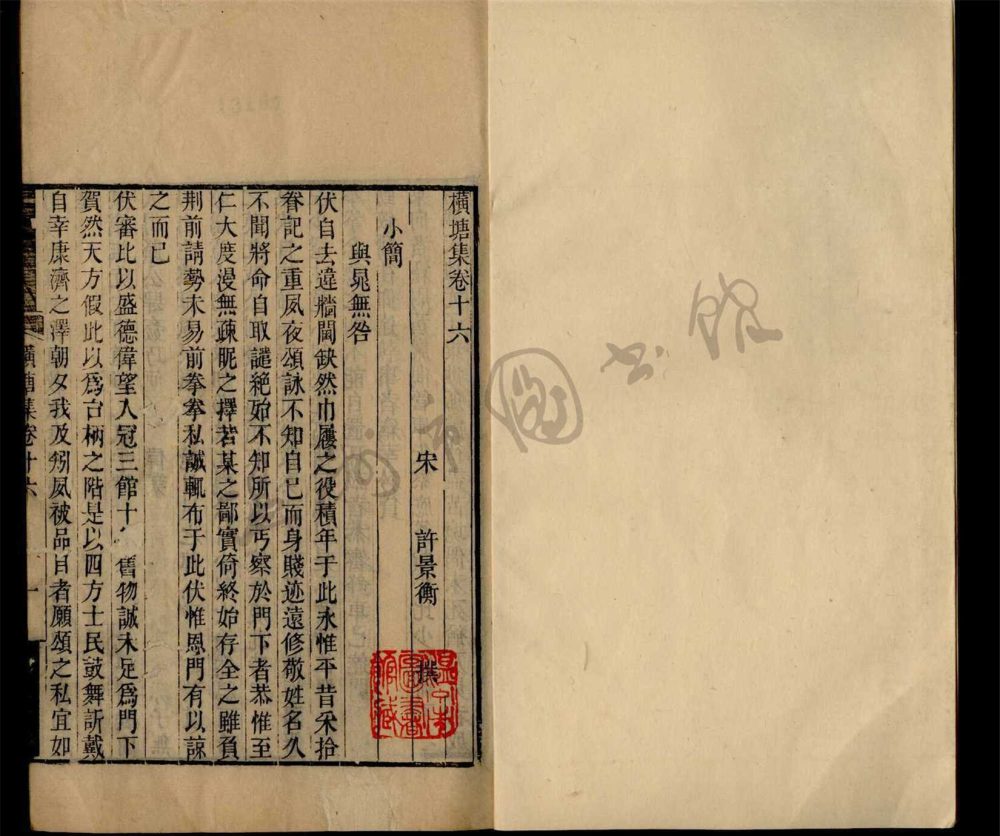 橫塘集卷十六
宋 許景衡 撰
小簡
與晁無咎
伏自去違牆閫缺然巾屨之役積年于此永惟平昔采拾
眷記之重夙夜頌詠不知自已而身賤迹遠修敬姓名久
不聞將命自取譴絶始不知所以丐察於門下者恭惟至
仁大度漫無疎昵之擇若某之鄙實倚終始存全之雖負
荆前請勢未易前拳拳私誠輒布于此伏惟恩門有以諒
之而已
伏審比以盛德偉望入冠三館十 舊物誠未足爲門下
賀然天方假此以爲台柄之階是以四方士民鼓舞訢戴
自幸康濟之澤朝夕我及矧夙被品目者願頌之私宜如
橫塘集卷十六
一
館書圖